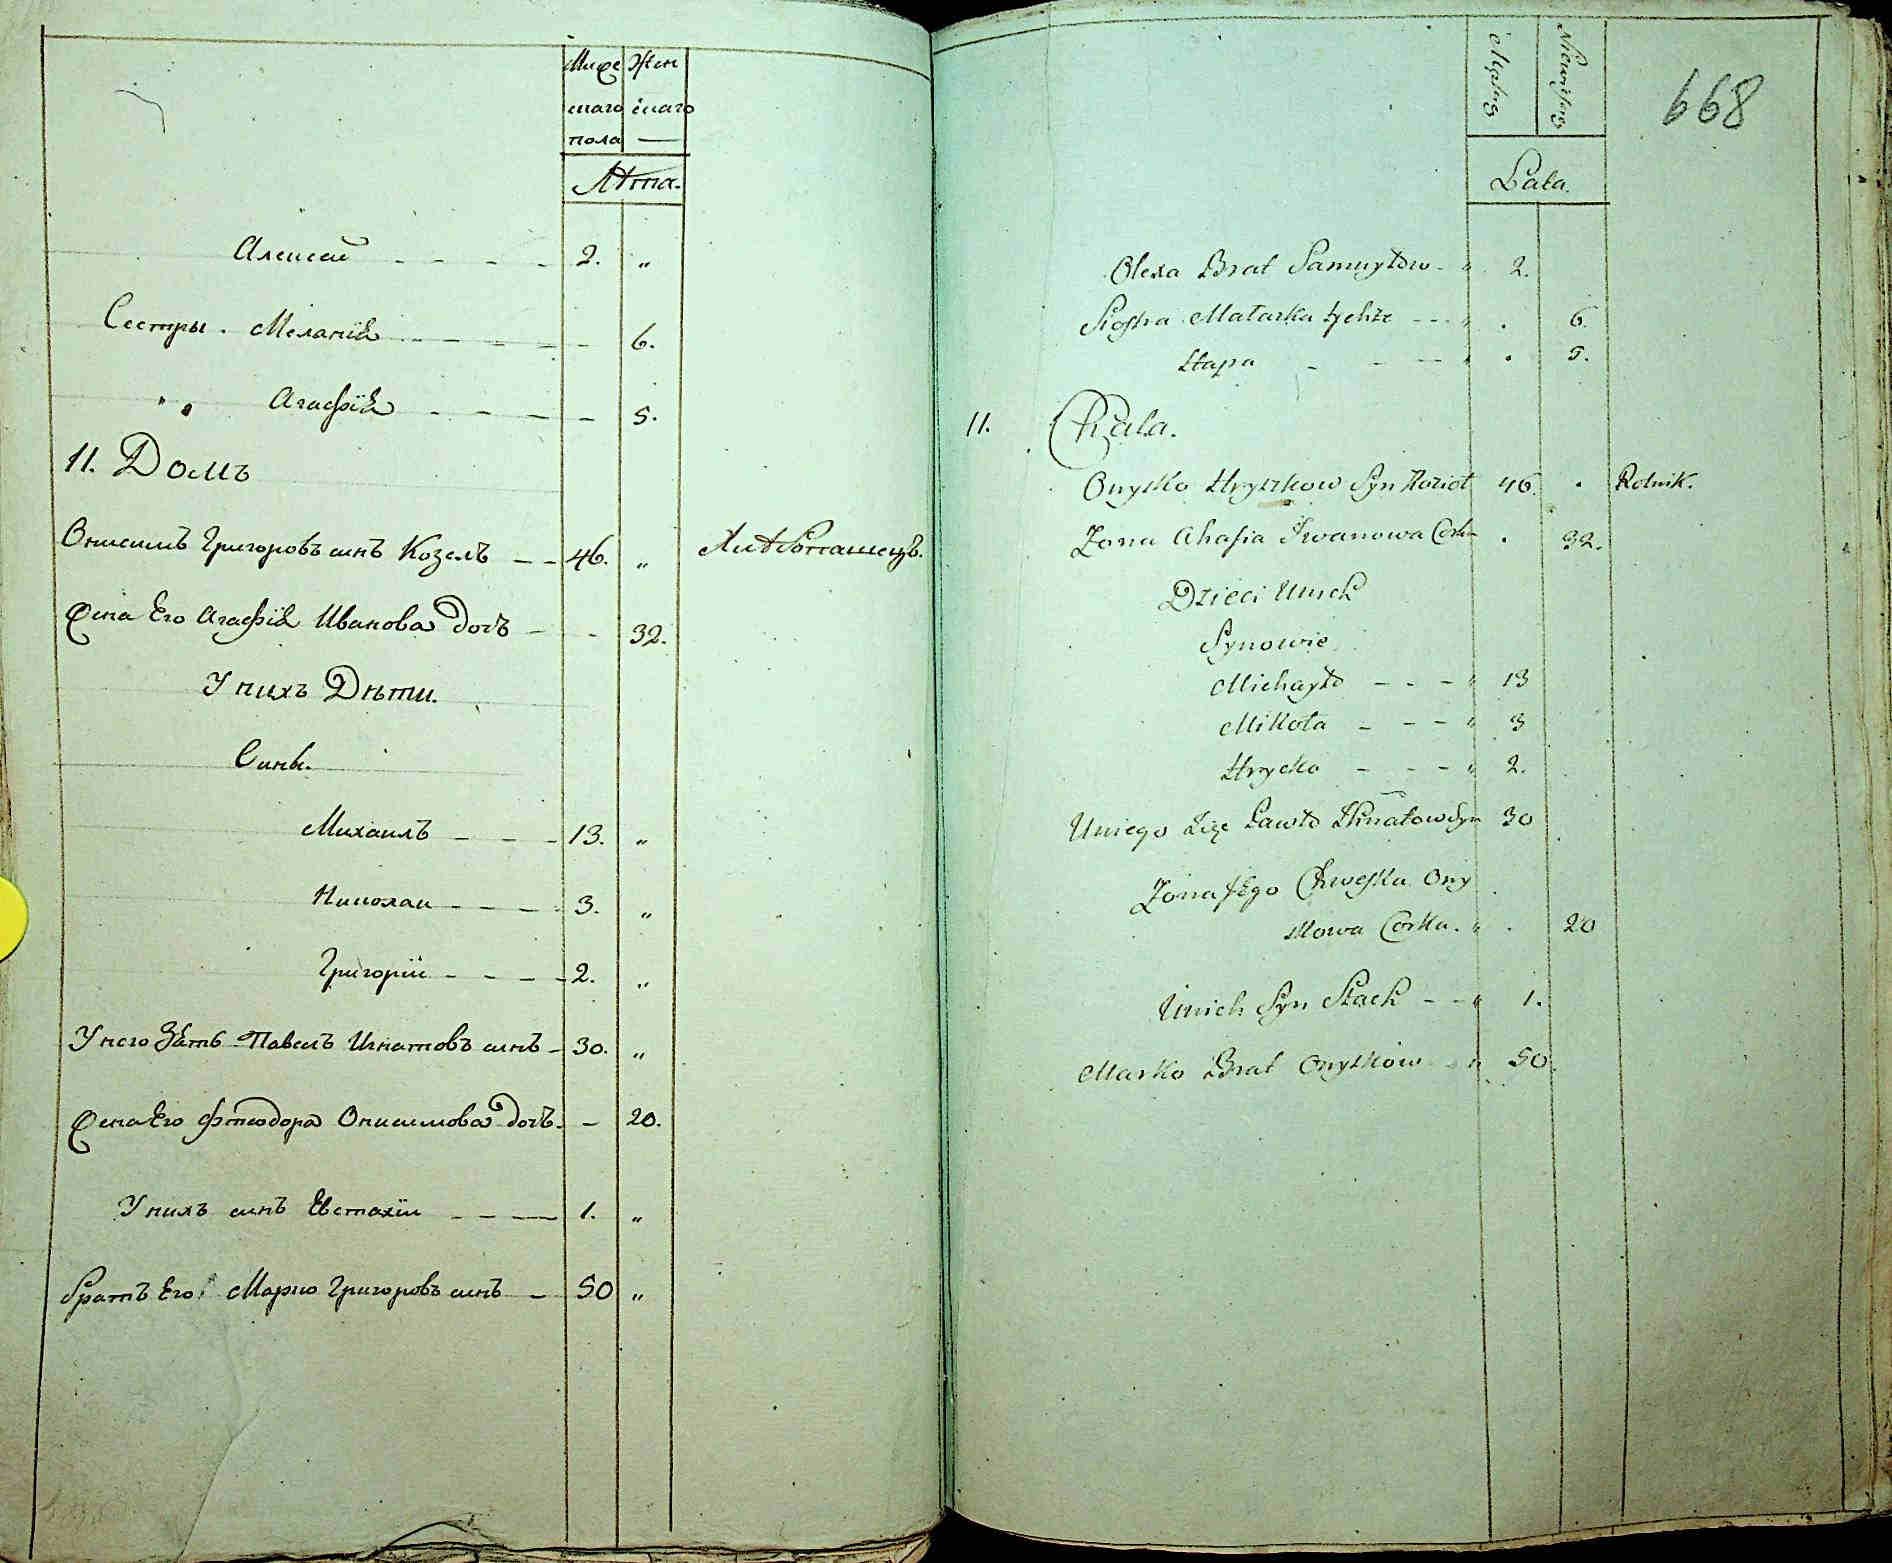 Муже Жен
скаго скаго
пола —
Лѣта.
Алексей - - - - 2. "
Сестры. Меланія - - - - - 6.
" " Агафія - - - - - 5.
11. Домъ
Онисимъ Григоровъ синъ Козелъ - - 46. " Хлѣбопашецъ.
Жена Его Агафія Иванова дочь - - 32.
У нихъ Дѣти.
Сины.
Михаилъ - - - - 13. "
Николаи - - - - 3. "
Григорїи - - - - 2. "
У него Зять Павелъ Игнатовъ синъ - 30. "
Жена Его Фтеодора Онисимова дочь. - 20.
У нихъ синъ Евстахїи - - - - 1. "
братъ Его Марко Григоровъ синъ - 50 "
668
Lata.
Olexa Brat Samuyłow - " 2.
Siostra Małaszka tychże - - - " . 6.
Hapa - - - - " . 5.
11. Chata.
Onysko Hryszkow Syn Kozioł 46. . Rolnik.
Żona Ahafia Iwanowa Corka . 32.
Dzieci Unich
Synowie
Michayło - - - " 13
Mikoła - - - " 3
Hrycko - - - " 2.
Uniego Zięć Pawło Ihnatow Syn 30
Żona Jego Chweska Ony
skowa Corka. " . 20
Unich Syn Stach - - " 1.
Marko Brat Onyskow - " 50.